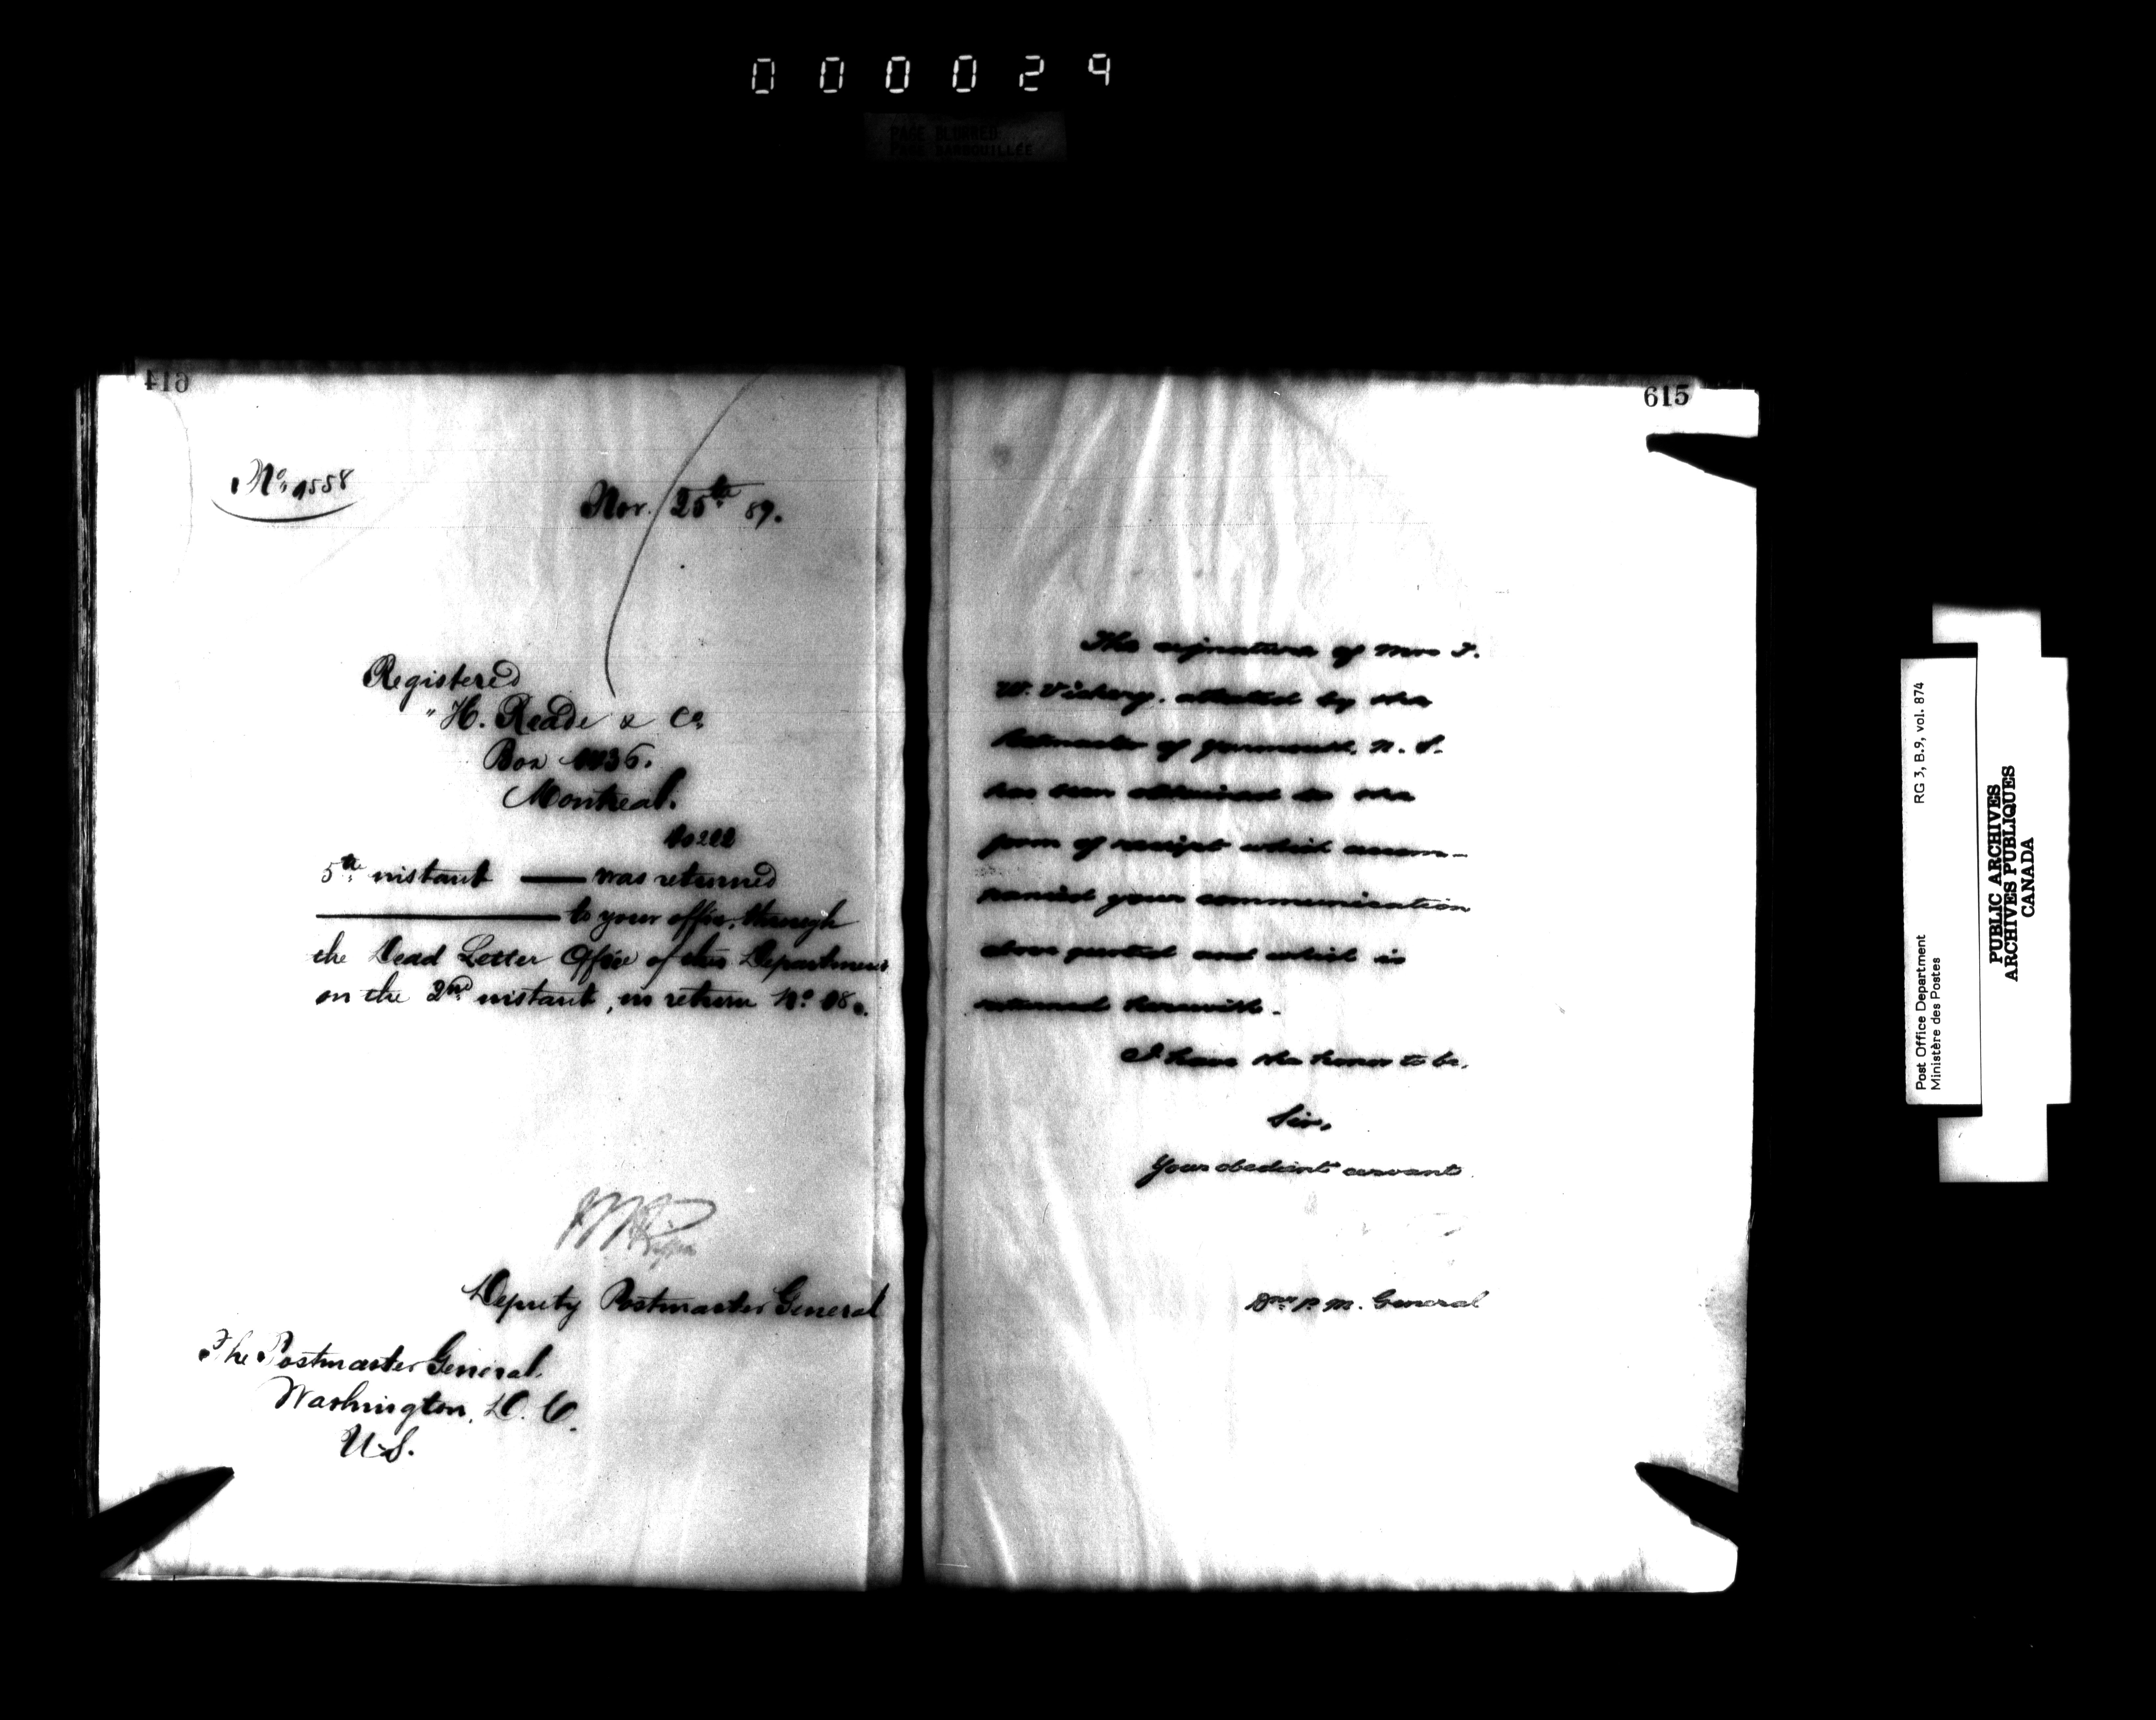 000029
PAGE BLURRED
PAGE BARBOUILLÉE
614
No. 1558
Nov. 25th 89.
Registered
"H. Reade & Co
Box
Montreal.
5th instant — was returned
— to your office, through
the Dead Letter Office of this Department
on the 2nd instant, in return No.
Deputy Postmaster General
The Postmaster General
Washington, D. C.
U.S.
615
The signature of Mrs J.
W. Vickery, attested by the
Postmaster of Yarmouth, N. S.
has been obtained to the
form of receipt which accom-
panied your communication
above quoted and which is
returned herewith.
I have the honor to be,
Sir,
Your obedient servant
P. M. General
Post Office Department
Ministère des Postes
RG 3, B.9, vol. 874
PUBLIC ARCHIVES
ARCHIVES PUBLIQUES
CANADA